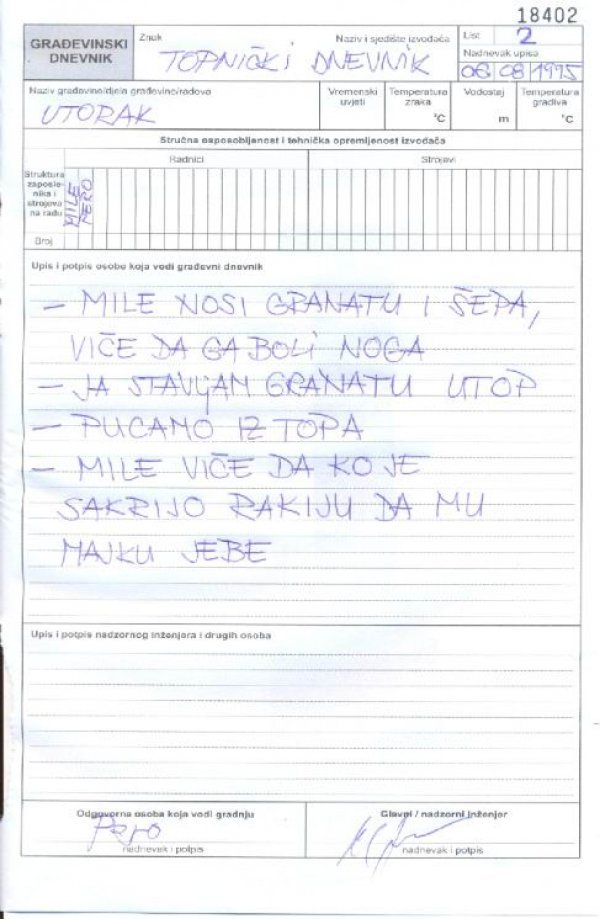 18402
GRAĐEVINSKI DNEVNIK
Znak
Naziv i sjedište izvođača
TOPNIČKI DNEVNIK
List 2
Nadnevak upisa
08 08 1995
Naziv građevine/dijela građevine/radova
UTORAK
Vremenski uvjeti
Temperatura zraka °C
Vodostaj m
Temperatura gradiva °C
Stručna osposobljenost i tehnička opremljenost izvođača
Radnici
Strojevi
Struktura zaposlenika i strojeva na radu
MILE
PERO
Broj
Upis i potpis osobe koja vodi građevni dnevnik
- MILE NOSI GRANATU I ŠEPA,
VIČE DA GA BOLI NOGA
- JA STAVLJAM GRANATU U TOP
- PUCAMO IZ TOPA
- MILE VIČE DA KO JE
SAKRIJO RAKIJU DA MU
MAJKU JEBE
Upis i potpis nadzornog inženjera i drugih osoba
Odgovorna osoba koja vodi gradnju
Glavni / nadzorni inženjer
Pero
nadnevak i potpis
nadnevak i potpis